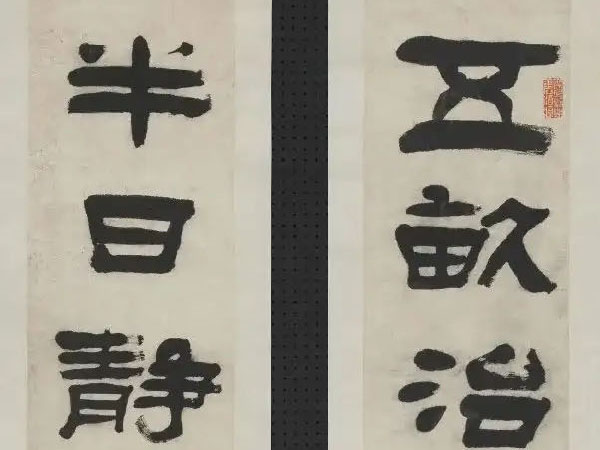 五畝治
半日靜